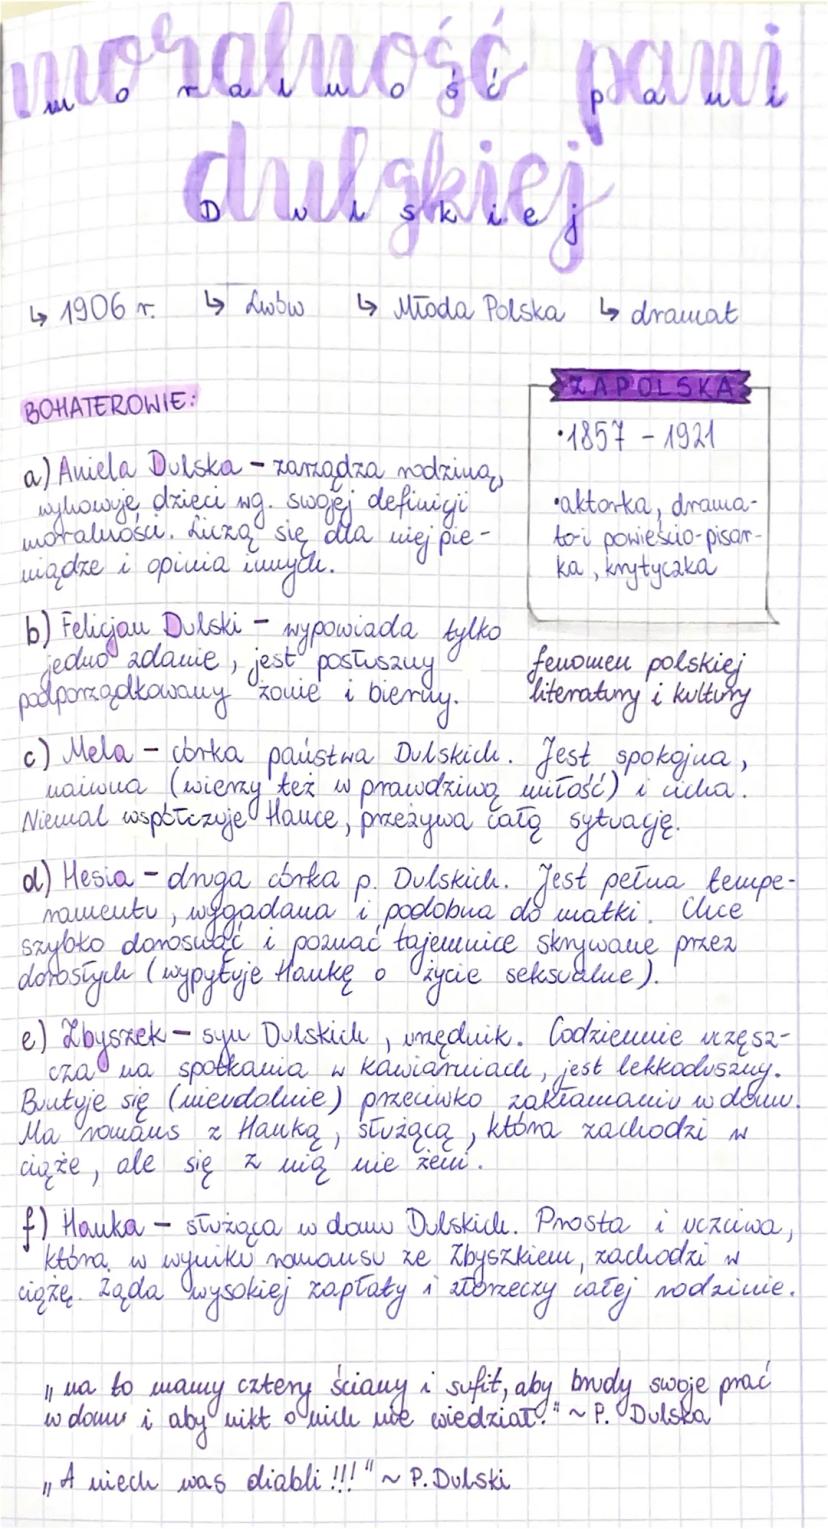 moralność pani
m o r a l n o ś ć p a n i
dulskiej
D u l s k i e j
↳ 1906 r. ↳ Lwów ↳ Młoda Polska ↳ dramat
BOHATEROWIE:
a) Aniela Dulska – zarządza rodziną,
wyhowuję dzieci wg. swojej definicji
moralności. Liczą się dla niej pie-
niądze i opinia innych.
ZAPOLSKA
•1857 – 1921
•aktorka, drama-
to-i powieścio-pisar-
ka, krytyczka
fenomen polskiej
literatury i kultury
b) Felicjan Dulski – wypowiada tylko
jedno zdanie, jest posłuszny
podporządkowany żonie i bierny.
c) Mela – córka państwa Dulskich. Jest spokojna,
naiwna (wierzy też w prawdziwą miłość) i cicha.
Niemal współczuje Hance, przeżywa całą sytuację.
d) Hesia – druga córka p. Dulskich. Jest pełna tempe-
ramentu, wygadana i podobna do matki. Chce
szybko dorosnąć i poznać tajemnice skrywane przez
dorosłych (wypytuje Hankę o życie seksualne).
e) Zbyszek – syn Dulskich, urzędnik. Codziennie uczęsz-
cza na spotkania w kawiarniach, jest lekkoduszny.
Buntuje się (nieudolnie) przeciwko zakłamaniu w domu.
Ma romans z Hanką, służącą, która zachodzi w
ciąże, ale się z nią nie żeni.
f) Hanka – służąca w domu Dulskich. Prosta i uczciwa,
która, w wyniku romansu ze Zbyszkiem, zachodzi w
ciążę. Żąda wysokiej zapłaty i złorzeczy całej rodzinie.
„na to mamy cztery ściany i sufit, aby brudy swoje prać
w domu i aby nikt o nich nie wiedział." ~ P. Dulska
„A niech was diabli!!!" ~ P. Dulski